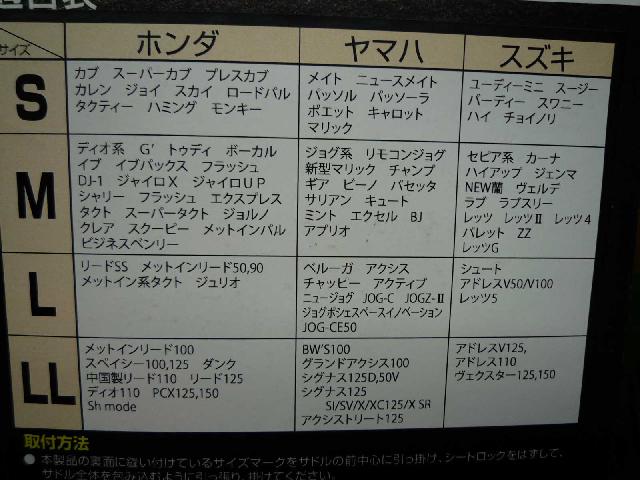 サイズ ホンダ ヤマハ スズキ
S
カブ スーパーカブ プレスカブ
カレン ジョイ スカイ ロードパル
タクティー ハミング モンキー
メイト ニュースメイト
パッソル パッソーラ
ポエット キャロット
マリック
ユーディーミニ スージー
バーディー スワニー
ハイ チョイノリ
M
ディオ系 G' トゥディ ボーカル
イブ イブパックス フラッシュ
DJ-1 ジャイロX ジャイロUP
シャリー フラッシュ エクスプレス
タクト スーパータクト ジョルノ
クレア スクーピー メットインパル
ビジネスベンリー
ジョグ系 リモコンジョグ
新型マリック チャンプ
ギア ビーノ パセッタ
サリアン キュート
ミント エクセル BJ
アプリオ
セピア系 カーナ
ハイアップ ジェンマ
NEW蘭 ヴェルデ
ラブ ラブスリー
レッツ レッツⅡ レッツ4
パレット ZZ
レッツG
L
リードSS メットインリード50,90
メットイン系タクト ジュリオ
ベルーガ アクシス
チャッピー アクティブ
ニュージョグ JOG-C JOGZ-Ⅱ
ジョグポシェスペースイノベーション
JOG-CE50
シュート
アドレスV50/V100
レッツ5
LL
メットインリード100
スペイシー100,125 ダンク
中国製リード110 リード125
ディオ110 PCX125,150
Sh mode
BW'S100
グランドアクシス100
シグナス125D,50V
シグナス125
SI/SV/X/XC125/X SR
アクシストリート125
アドレスV125,
アドレス110
ヴェクスター125,150
取付方法
● 本製品の裏面に縫い付けているサイズマークをサドルの前中心に引っ掛け、シートロックをはずして、
サドル全体を包み込むように引っ張り、掛けてください。